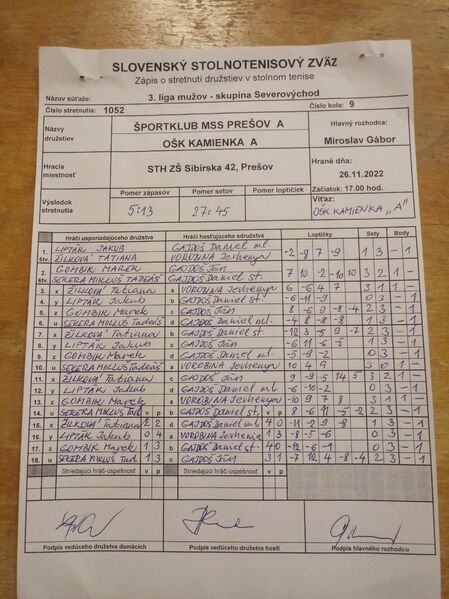 SLOVENSKÝ STOLNOTENISOVÝ ZVÄZ
Zápis o stretnutí družstiev v stolnom tenise
Názov súťaže: 3. liga mužov - skupina Severovýchod
Číslo stretnutia: 1052 Číslo kola: 9
Názvy družstiev ŠPORTKLUB MSS PREŠOV A Hlavný rozhodca:
OŠK KAMIENKA A Miroslav Gábor
Hracia miestnosť STH ZŠ Sibírska 42, Prešov Hrané dňa: 26.11.2022
Začiatok: 17.00 hod.
Výsledok stretnutia Pomer zápasov Pomer setov Pomer loptičiek Víťaz:
5:13 27:45 OŠK KAMIENKA „A"
Hráči usporiadajúceho družstva Hráči hosťujúceho družstva Loptičky Sety Body
1. štv. LIPTÁK JAKUB GAJDOŠ Daniel ml. -2 -8 7 -9 1 3 - 1
ŽILKOVÁ TATIANA VOROBINA Jevhenyia
2. štv. GOMBIK MAREK GAJDOŠ Ján 7 10 -2 -10 10 3 2 1 -
SEKERA MIKLUŠ TADEÁŠ GAJDOŠ Daniel st.
3. x ŽILKOVÁ Tatiana a VOROBINA Jevhenyia 6 -6 4 7 3 1 1 -
4. y LIPTÁK Jakub b GAJDOŠ Daniel st. -6 -11 -9 0 3 - 1
5. z GOMBIK Marek c GAJDOŠ Ján 8 -6 9 -8 -4 2 3 - 1
6. u SEKERA MIKLUŠ Tadeáš d GAJDOŠ Daniel ml. -4 8 -8 -8 1 3 - 1
7. x ŽILKOVÁ Tatiana b GAJDOŠ Daniel st. -12 3 -5 9 -7 2 3 - 1
8. y LIPTÁK Jakub c GAJDOŠ Ján -6 11 -6 -5 1 3 - 1
9. z GOMBIK Marek d GAJDOŠ Daniel ml. -5 -9 -2 0 3 - 1
10. u SEKERA MIKLUŠ Tadeáš a VOROBINA Jevhenyia 10 4 9 3 0 1 -
11. x ŽILKOVÁ Tatiana c GAJDOŠ Ján 9 -9 -5 14 5 3 2 1 -
12. y LIPTÁK Jakub d GAJDOŠ Daniel ml. -6 -10 -2 0 3 - 1
13. z GOMBIK Marek a VOROBINA Jevhenyia -10 9 7 8 3 1 1 -
14. u SEKERA MIKLUŠ Tad. v p b GAJDOŠ Daniel st. v p 8 -6 11 -5 -2 2 3 - 1
15. x ŽILKOVÁ Tatiana 2 2 d GAJDOŠ Daniel ml. 4 0 -11 -2 9 -8 1 3 - 1
16. y LIPTÁK Jakub 0 4 a VOROBINA Jevhenia 1 3 -8 -5 -6 0 3 - 1
17. z GOMBIK Marek 1 3 b GAJDOŠ Daniel st. 4 0 -12 -6 -1 0 3 - 1
18. u SEKERA MIKLUŠ Tad. 1 3 c GAJDOŠ Ján 3 1 -7 12 4 -8 -4 2 3 - 1
Striedajúci hráč-úspešnosť v p Striedajúci hráč-úspešnosť v p
Podpis vedúceho družstva domácich Podpis vedúceho družstva hostí Podpis hlavného rozhodcu